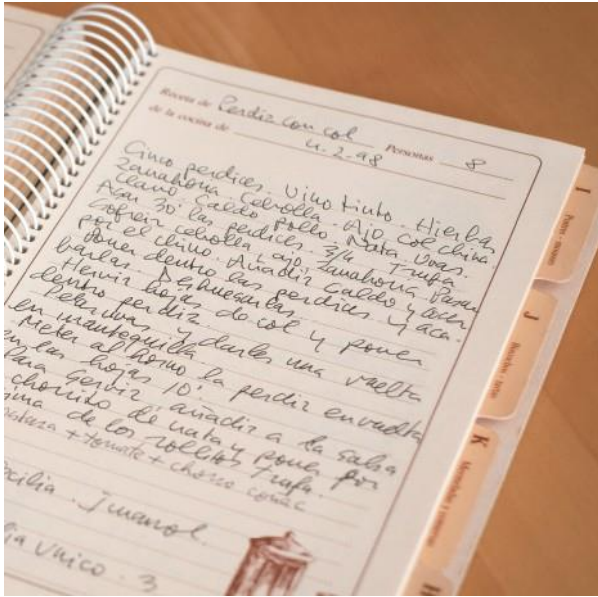 Receta de Perdiz con col
de la cocina de 4-2-98 Personas 8
Cinco perdices. Vino tinto. Hierbas
Zanahoria Cebolla. Ajo Col china.
Clavo Caldo pollo. Nata Uvas.
Asar 30' las perdices. 3/4 Trufa
Sofreir cebolla, ajo, zanahoria pasar
por el chino. Añadir Caldo y cocer
Poner dentro las perdices y aca-
barlas. Deshuesarlas
Hervir hojas de col y poner
dentro perdiz.
Pelar uvas y darles una vuelta
en mantequilla
Meter al horno la perdiz envuelta
en las hojas 10'.
Para servir añadir a la salsa
chorrito de nata y poner por
de los rollitos trufa.
+ tomate + chorro coñac
Imanol.
Unico. 3
I
J
K